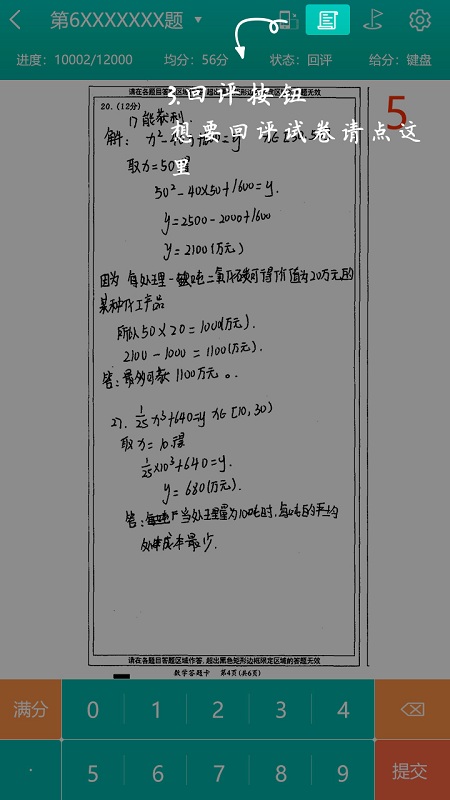 第6XXXXXXX题
进度：10002/12000 均分：56分 状态：回评 给分：键盘
请在各题目答题区域作答，超出黑色矩形边框限定区域的答题无效
3.回评按钮
想要回评试卷请点这里
5
20.（12分）
1) 能获利.
解：
取x=50得
50²-40×50+1600=y.
y=2500-2000+1600
y=2100(万元)
因为 每处理一吨二氧化碳可得价值为20万元的
某种化工产品
所以50×20=1000(万元).
2100-1000=1100(万元).
答：最多可获1100万元。
27. 1/25 x³+640=y x∈[10,30)
取x=10.得
1/25×10³+640=y.
y=680(万元).
答：当处理量为10吨时，每吨的平均
处理成本最少.
请在各题目答题区域作答，超出黑色矩形边框限定区域的答题无效
数学答题卡 第4页(共6页)
满分 0 1 2 3 4
. 5 6 7 8 9 提交